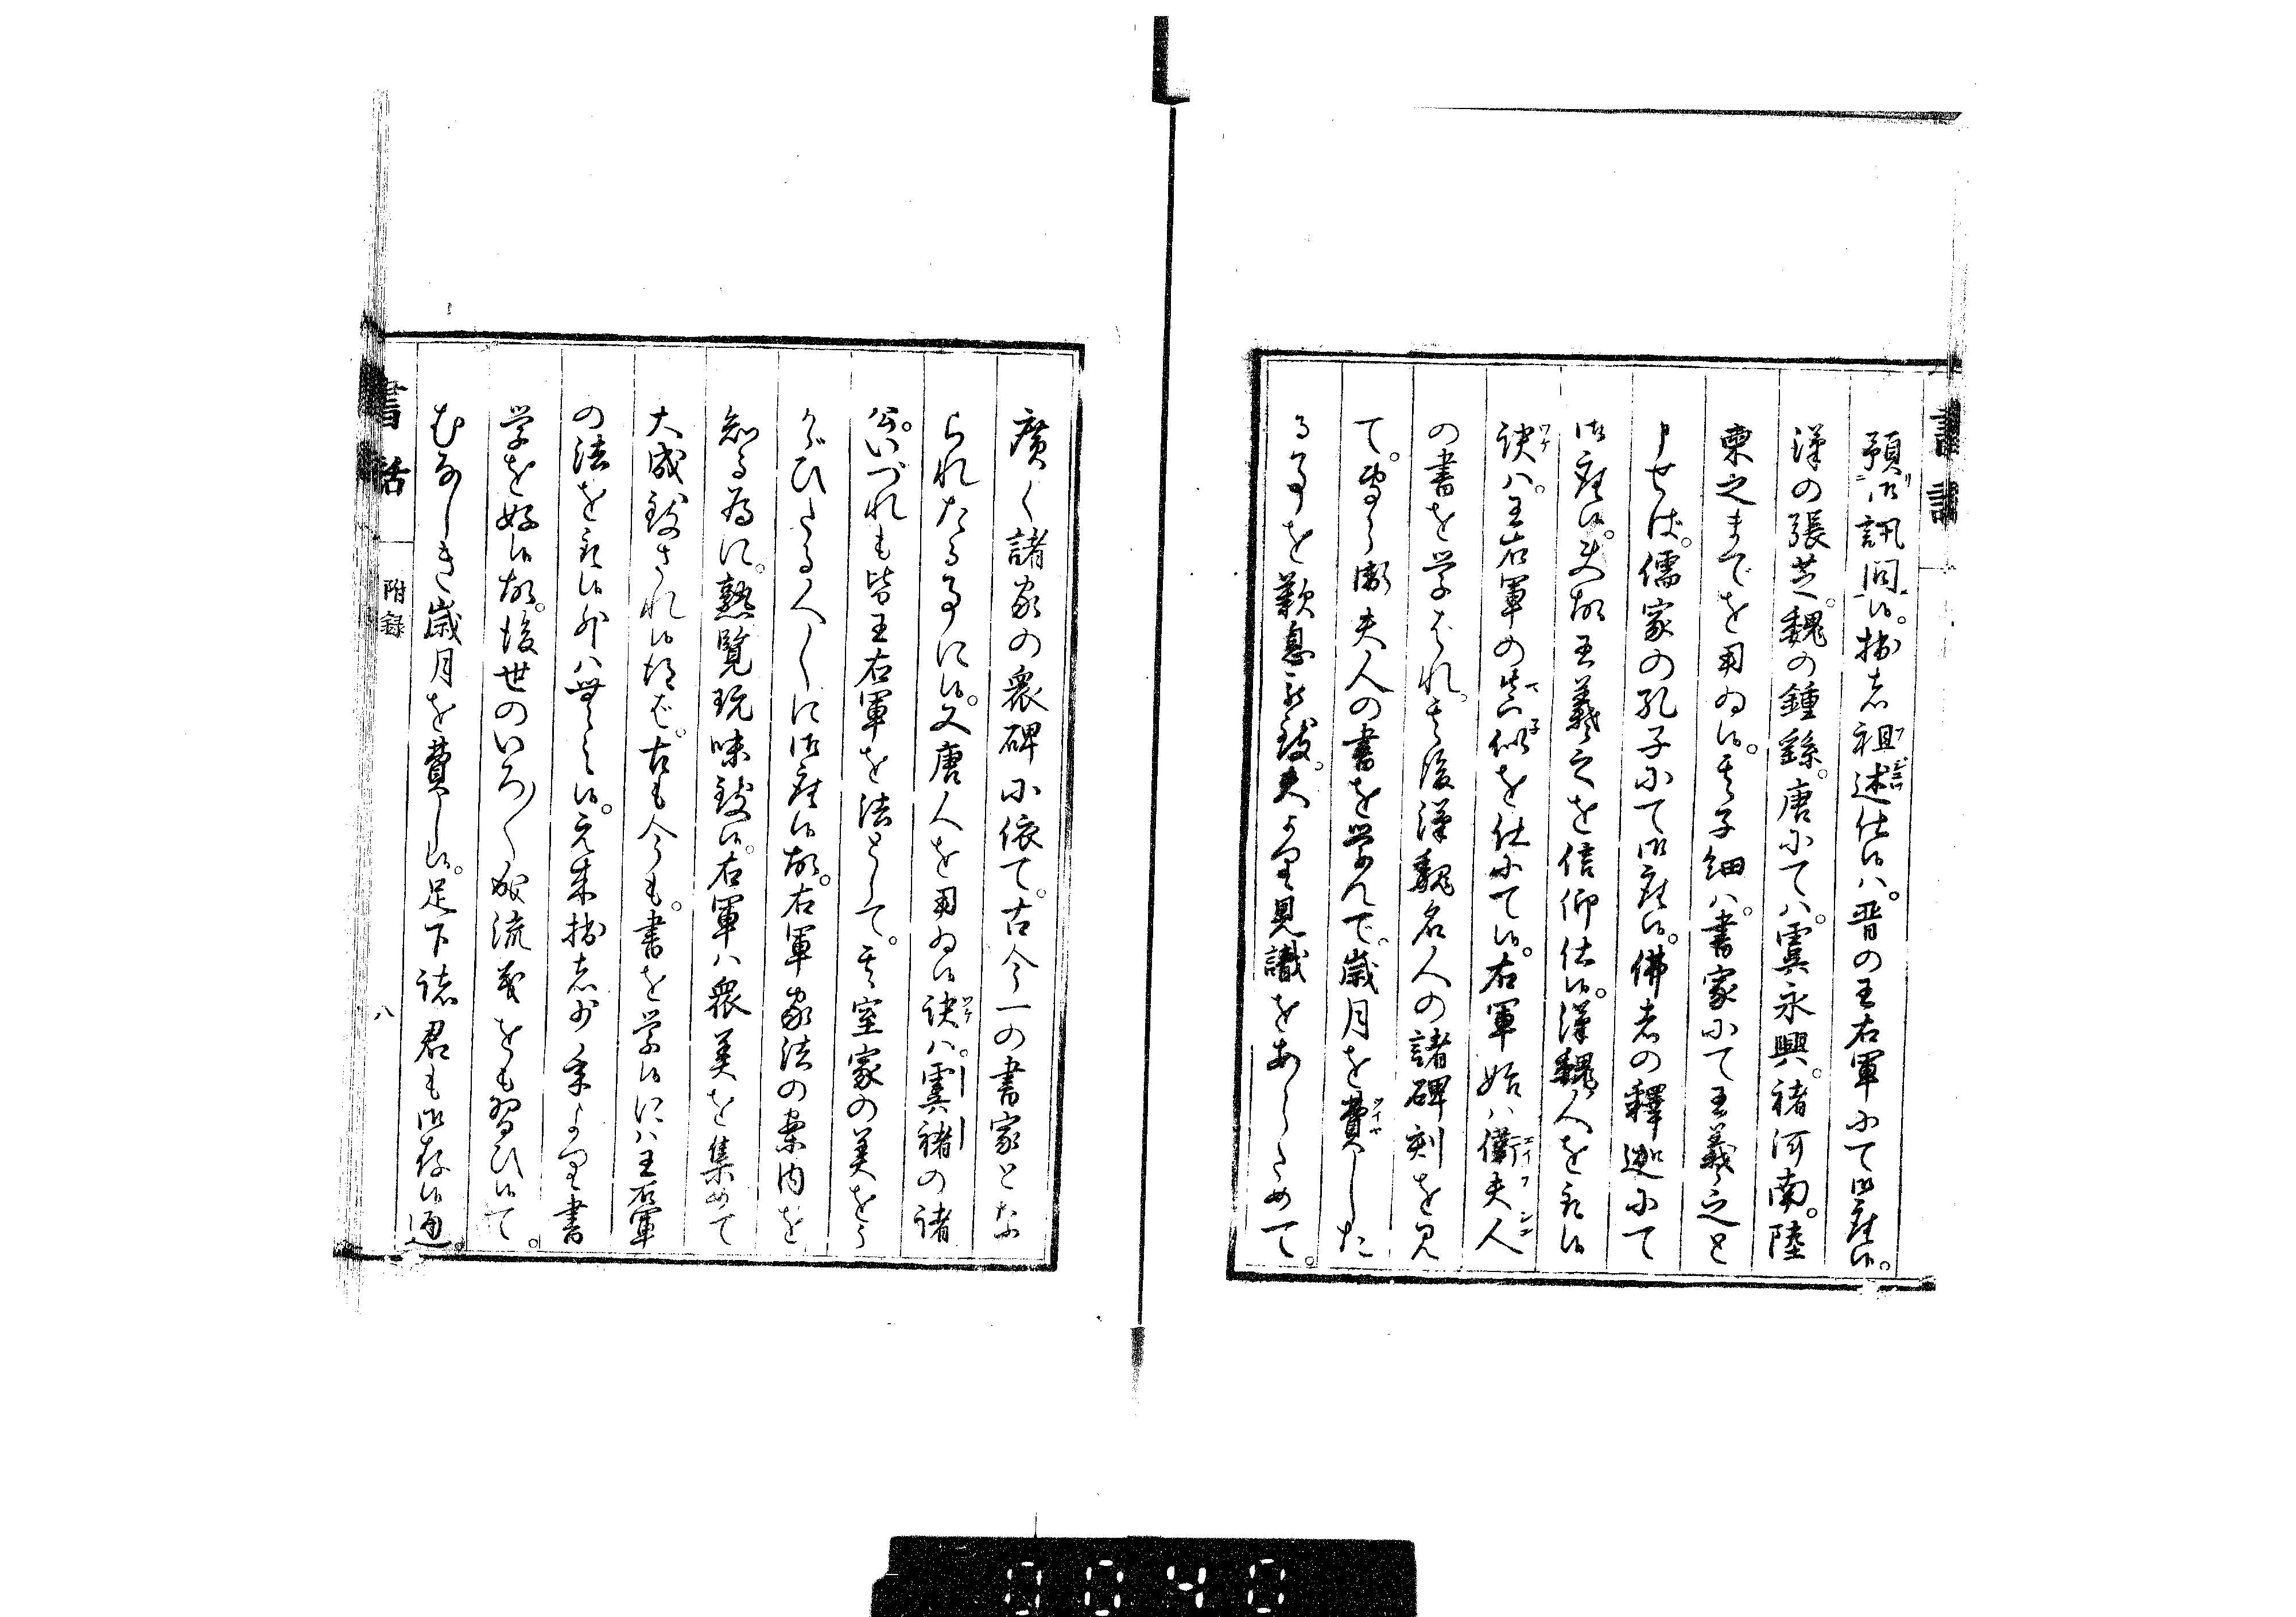 書話
預御訊問候。拙者祖述仕候ハ。晋の王右軍にて御座候。
漢の張芝。魏の鍾繇。唐にてハ。虞永興。褚河南。陸
柬之までを用ゐ候。其子細ハ。書家にて王羲之と
申せば。儒家の孔子にて御座候。佛者の釋迦にて
御座候。夫故王羲之を信仰仕候。漢魏人を取候
訣ハ。王右軍の真似を仕にて候。右軍始ハ衛夫人
の書を学ばれ。其後漢魏名人の諸碑刻を見
て。衛夫人の書を学んで。歳月を費した
る事を歎息被致。夫より見識をあらためて。
廣く諸家の衆碑に依て。古今一の書家とな
られたる事に候。又唐人を用ゐ候訣ハ。虞褚の諸
公。いづれも皆王右軍を法として。其室家の美をう
かゞひたる人〳〵に御座候故。右軍家法の案内を
知る為に。熟覧玩味致候。右軍ハ衆美を集めて
大成致され候得ば。古も今も。書を学候にハ王右軍
の法を取候外ハ無之候。元来拙者少年より書
学を好候故。後世のいろ〳〵成流義をも習ひ候て。
むなしき歳月を費し候。足下諸君も御存候通。
書話
附録
八
0040